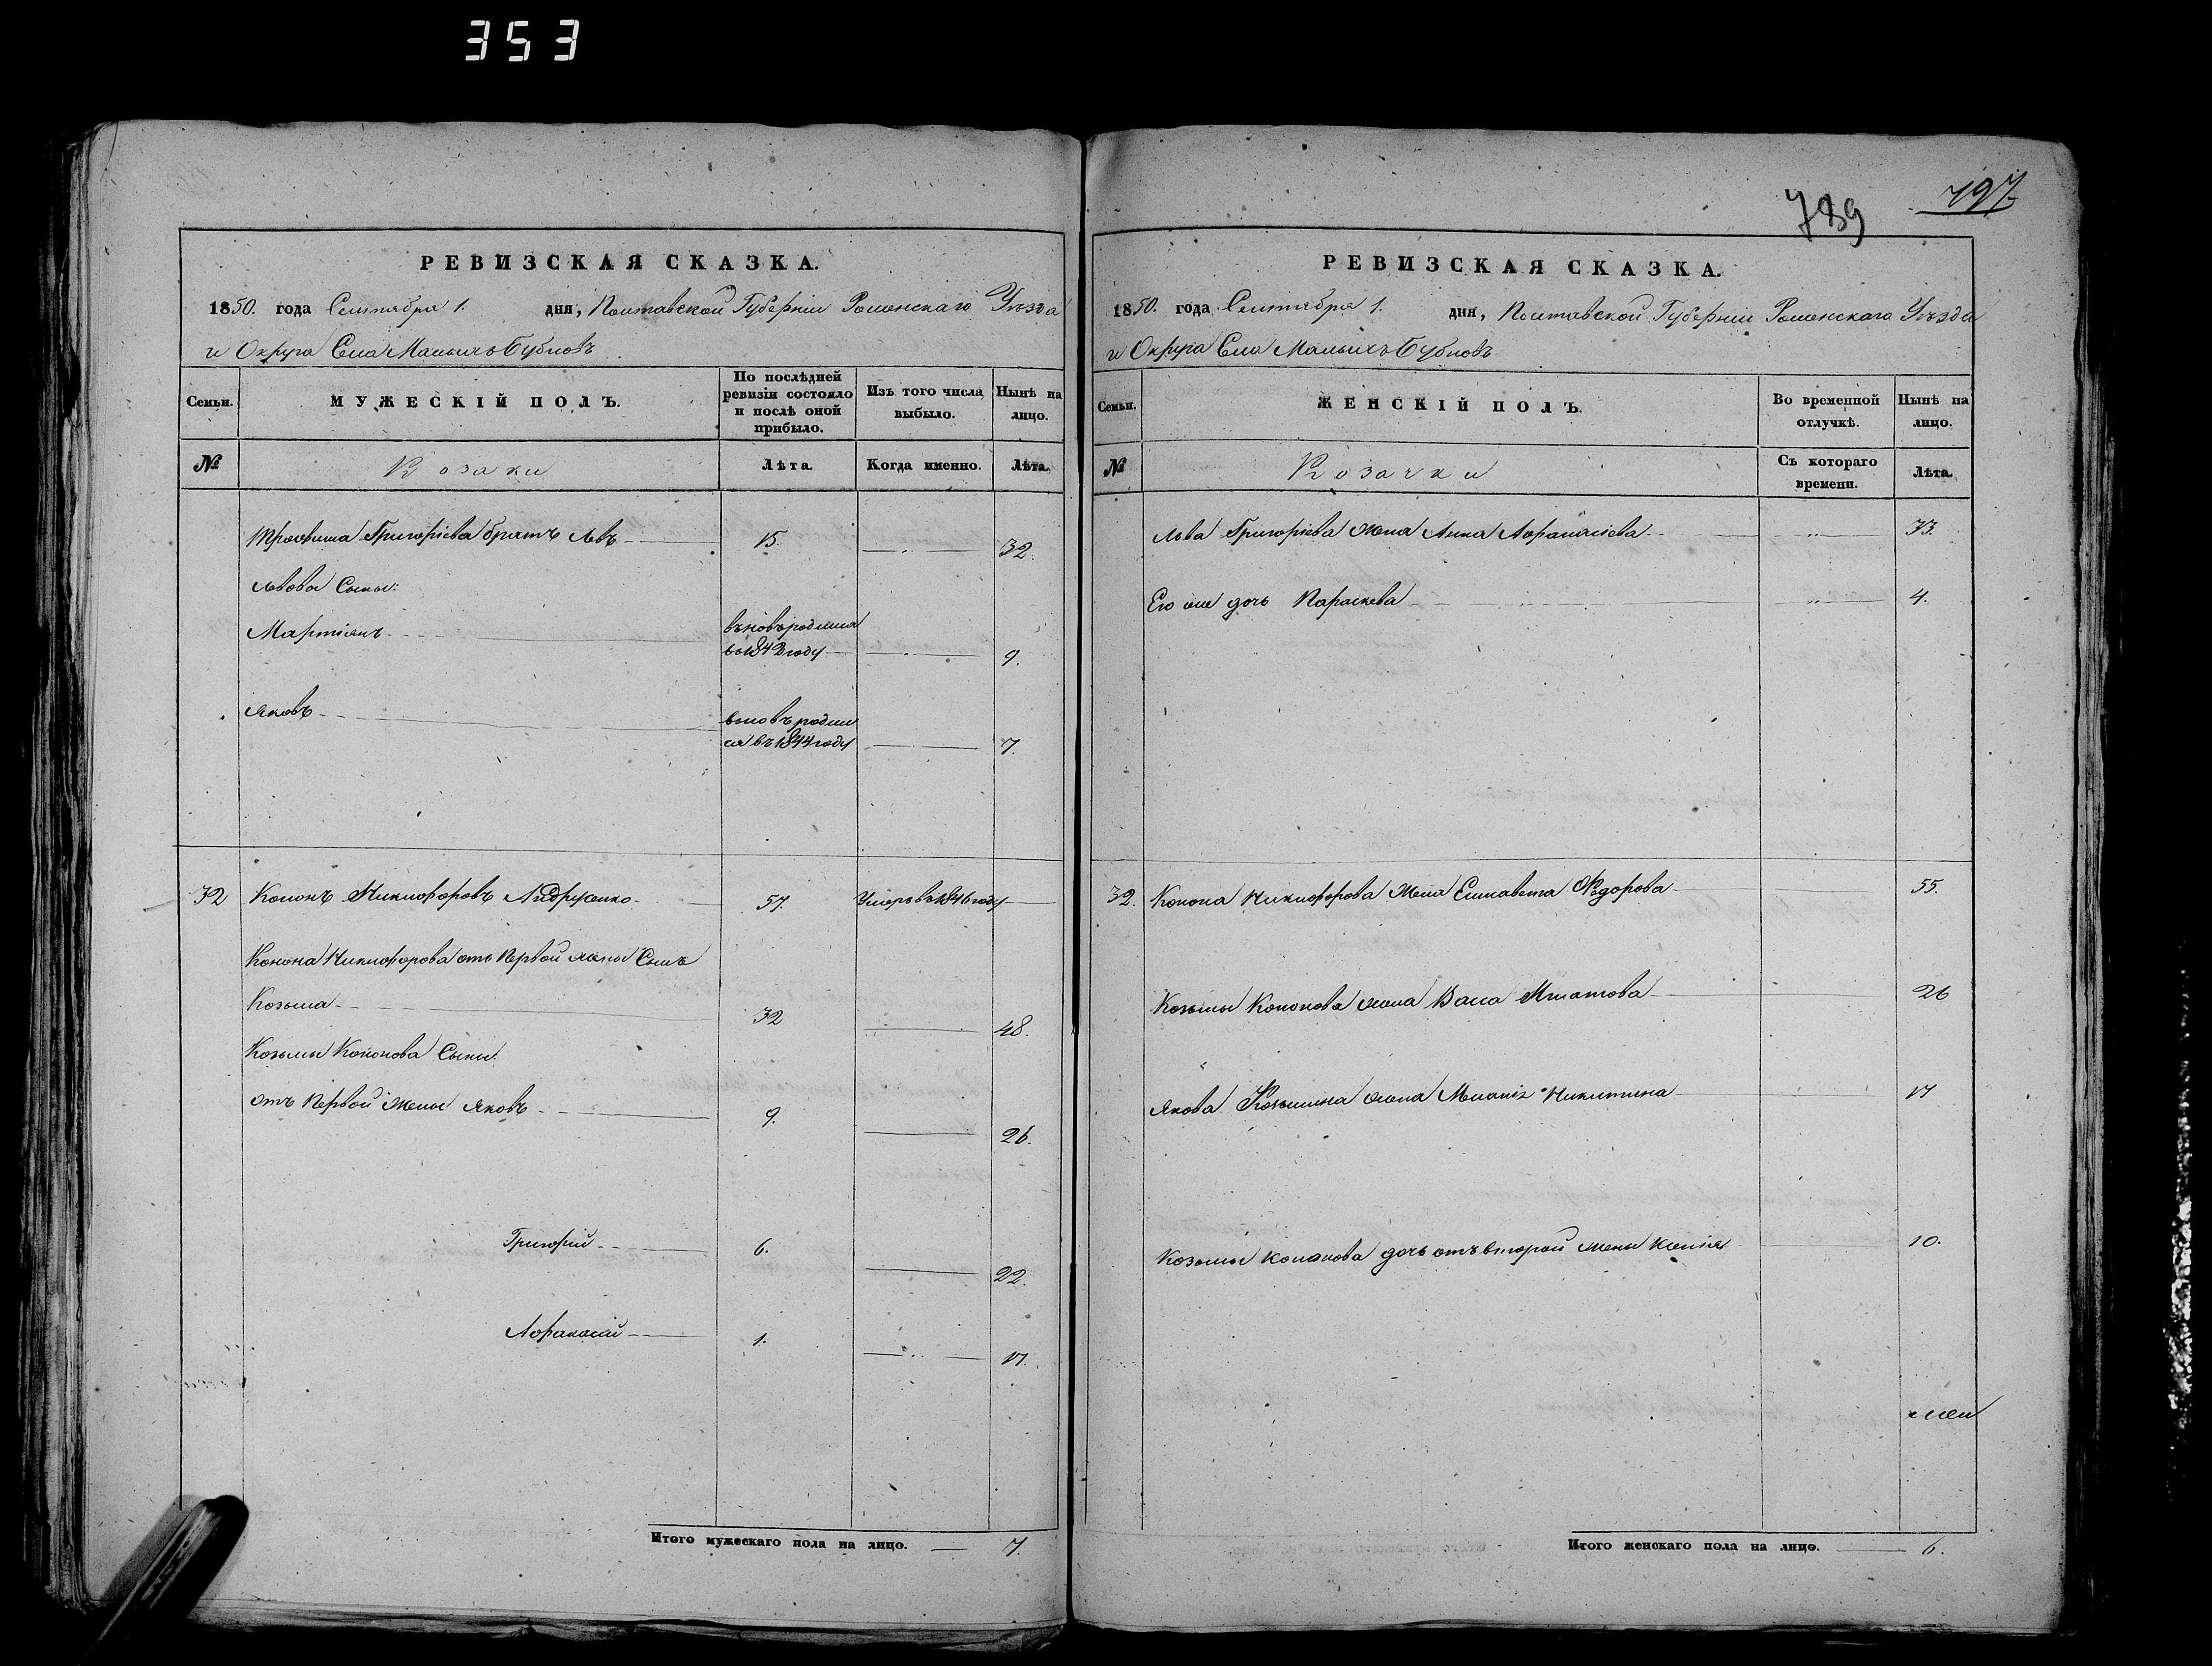 353
789
797
РЕВИЗСКАЯ СКАЗКА.
1850. года Сентября 1. дня, Полтавской Губерніи Роменскаго Уѣзда
и Округа Села Малыхъ Бубновъ
Семьи. МУЖЕСКІЙ ПОЛЪ. По послѣдней ревизіи состояло и послѣ оной прибыло. Изъ того числа выбыло. Нынѣ на лицо.
№ Козаки Лѣта. Когда именно. Лѣта.
Григорьева братъ Левъ 15. 32.
Львовы Сыны:
Мартинъ вновь родился
въ 1842 году 9.
Яковъ вновь родил
ся въ 1844 году 7.
32 Кононъ Никифоровъ 57. Умеръ въ 1846 году
Конона Никифорова отъ Первой жены Сынъ
Козьма 32 48.
Козьмы Кононова Сыны:
отъ Первой Жены Яковъ 9. 26.
Григорій 6. 22.
Афанасій 1. 17.
Итого мужескаго пола на лицо. 7.
РЕВИЗСКАЯ СКАЗКА.
1850. года Сентября 1. дня, Полтавской Губерніи Роменскаго Уѣзда
и Округа Села Малыхъ Бубновъ
Семьи. ЖЕНСКІЙ ПОЛЪ. Во временной отлучкѣ. Нынѣ на лицо.
№ Козачки Съ котораго времени. Лѣта.
Льва Григорьева Жена Анна Афанасіева 33.
Его же дочь Параскева 4.
32. Конона Никифорова Жена Елисавета Федорова 55.
Козьмы Кононова жена Васса 26
Якова Козьмина жена Меланія Никитина 17
Козьмы Кононова дочь отъ второй жены Ксенія 10.
Итого женскаго пола на лицо. 6.